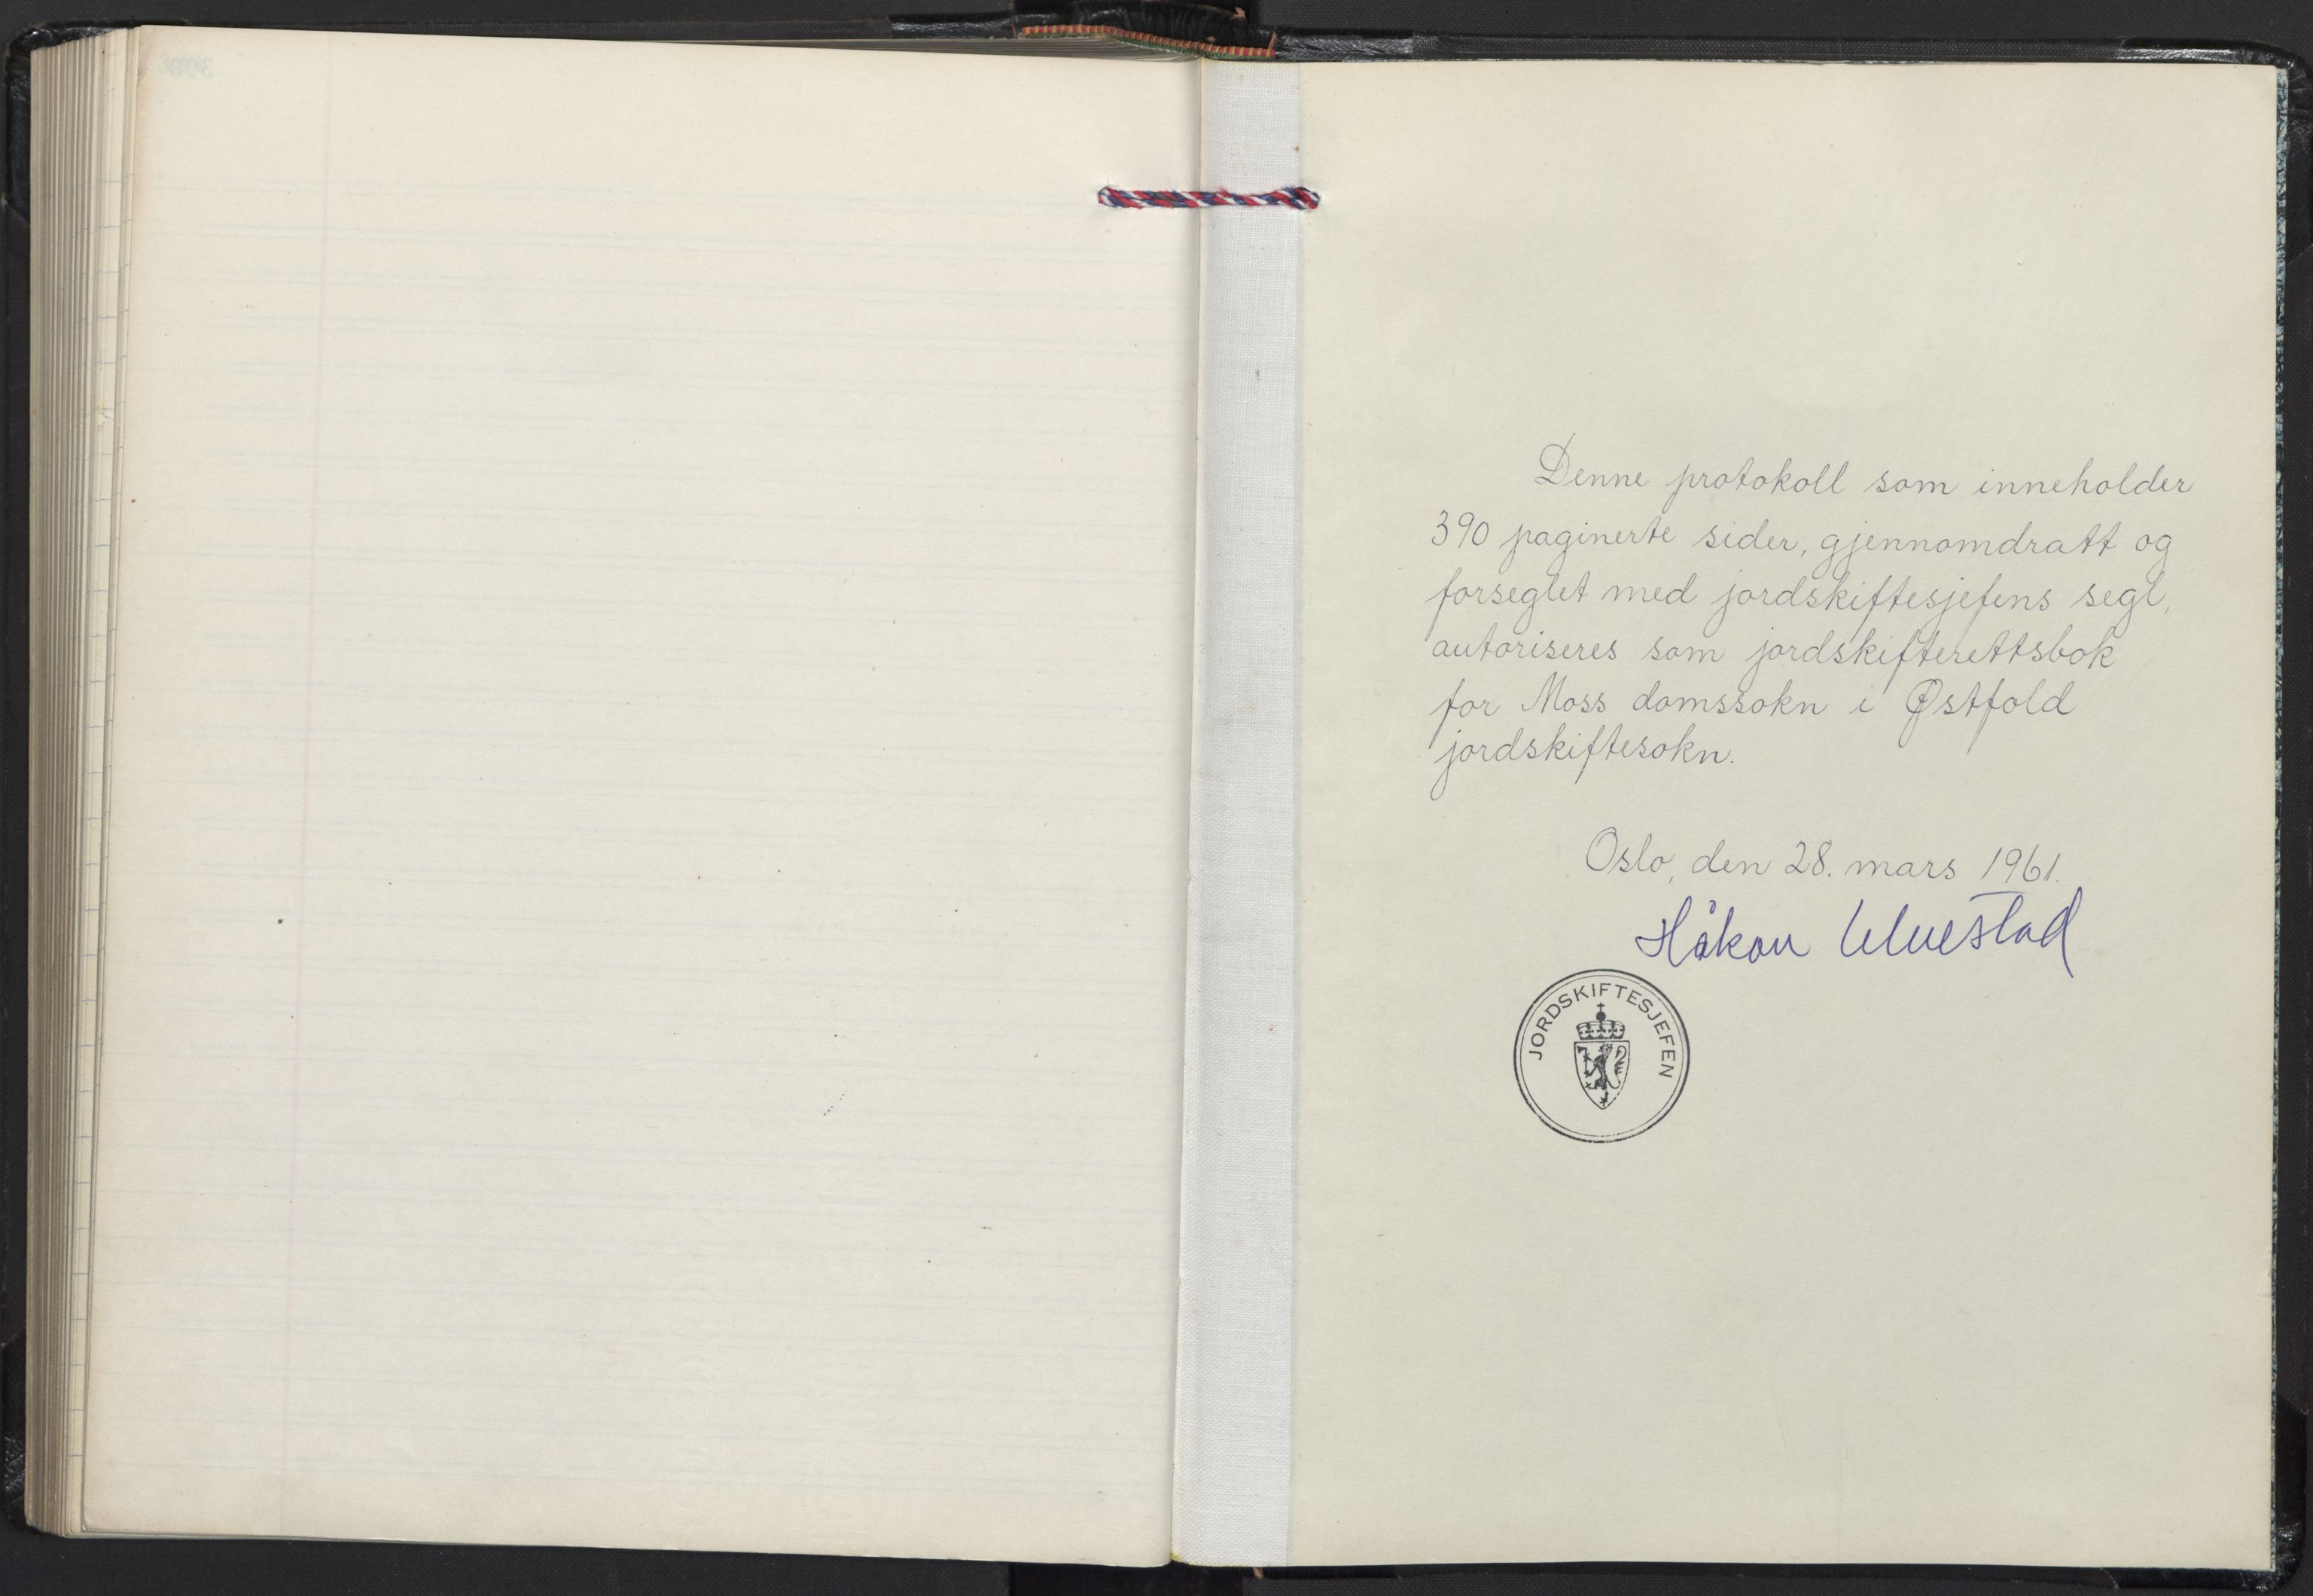 Denne protokoll som inneholder
390 paginerte sider, gjennomdratt og
forseglet med jordskiftesjefens segl,
autoriseres som jordskifterettsbok
for Moss domssokn i Østfold
jordskiftesokn.
Oslo, den 28. mars 1961.
Håkon
JORDSKIFTESJEFEN